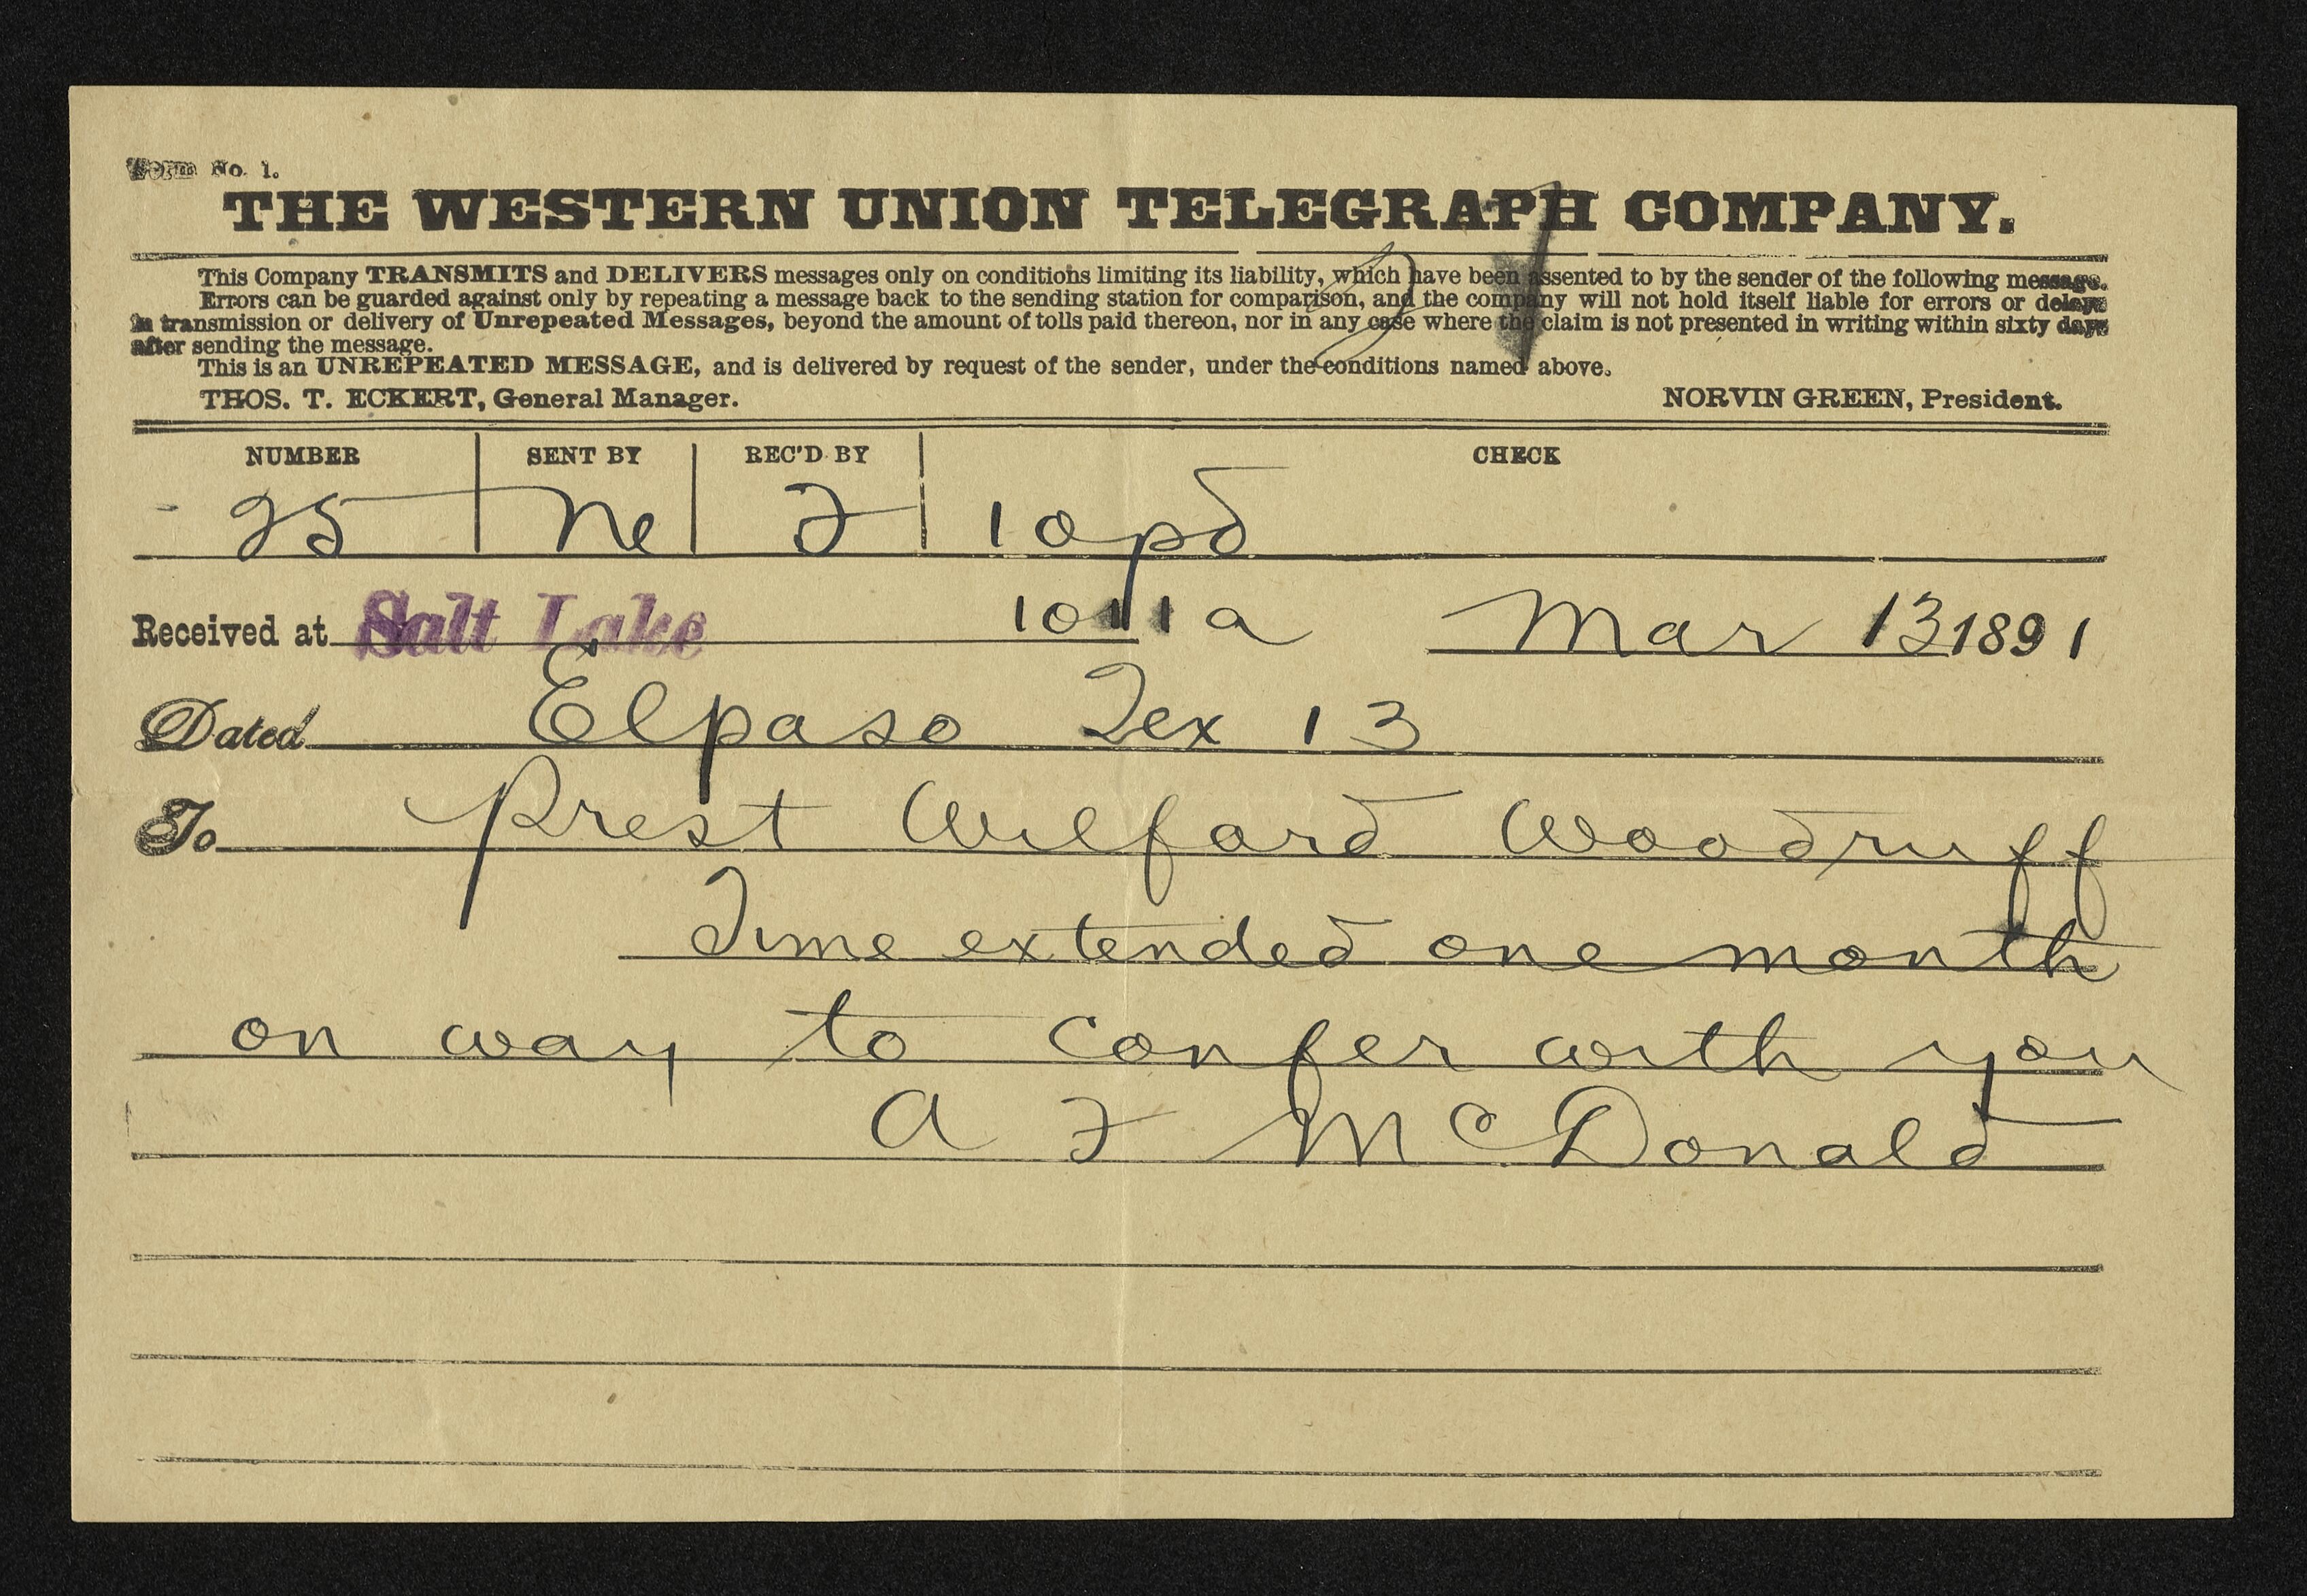 Form No. 1.
THE WESTERN UNION TELEGRAPH COMPANY.
This Company TRANSMITS and DELIVERS messages only on conditions limiting its liability, which have been assented to by the sender of the following message.
Errors can be guarded against only by repeating a message back to the sending station for comparison, and the company will not hold itself liable for errors or delays
in transmission or delivery of Unrepeated Messages, beyond the amount of tolls paid thereon, nor in any case where the claim is not presented in writing within sixty days
after sending the message.
This is an UNREPEATED MESSAGE, and is delivered by request of the sender, under the conditions named above.
THOS. T. ECKERT, General Manager. NORVIN GREEN, President.
NUMBER SENT BY REC'D BY CHECK
25 Ne 10pd
Received at Salt Lake Mar 13 1891
Dated Elpaso Tex 13
To Prest Wilford Woodruff
Time extended one month
on way to confer with you
A F McDonald